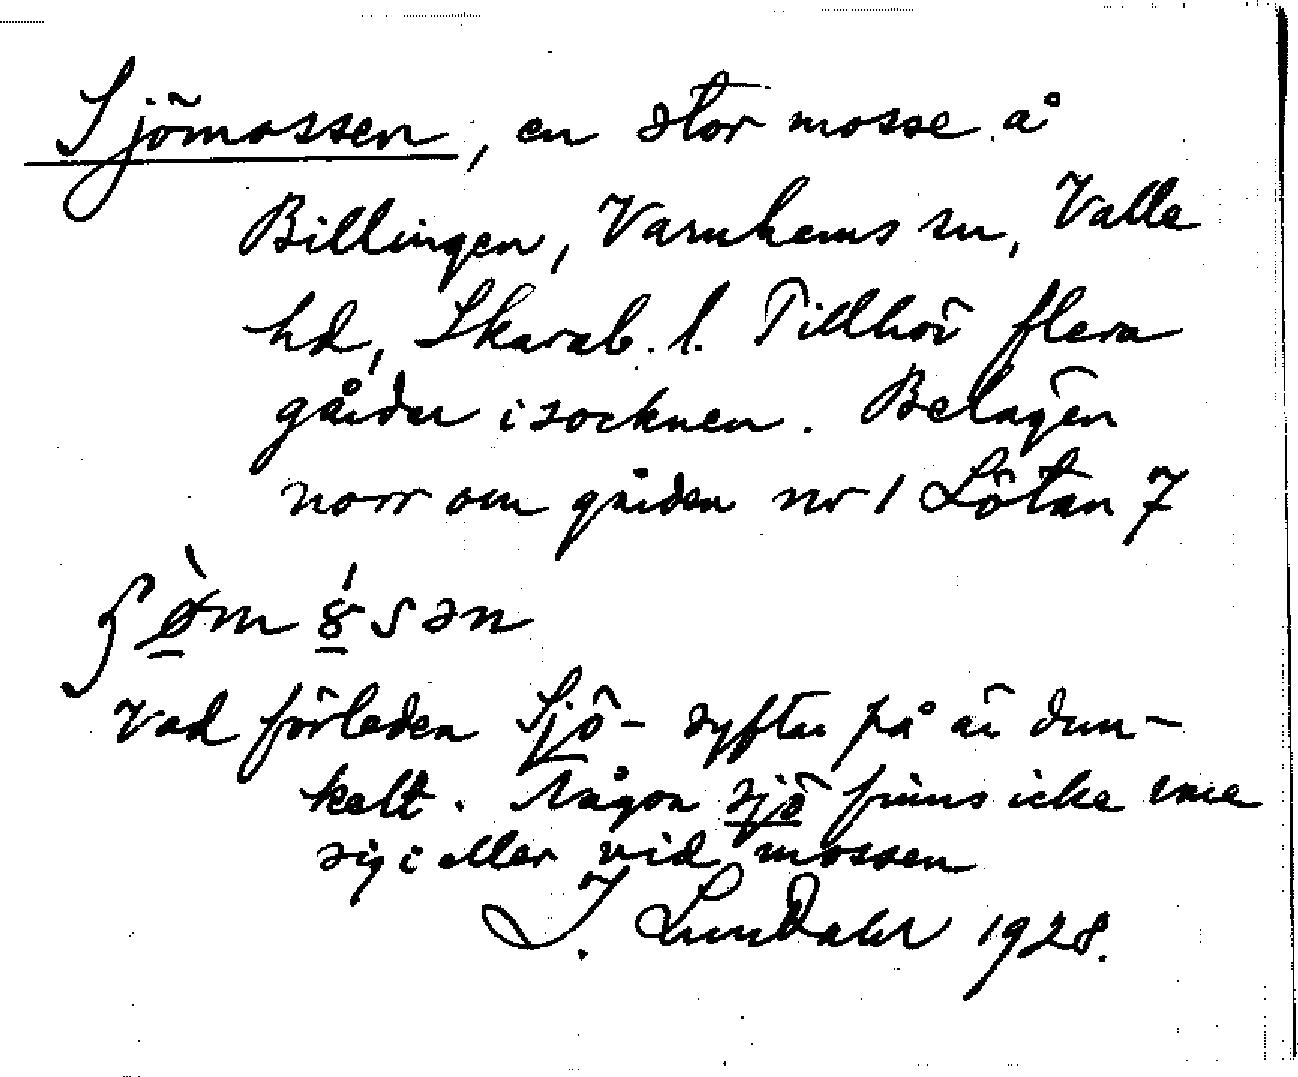 Sjömossen, en stor mosse å
Billingen, Varnhems sn, Valle
hd, Skarab. l. Tillhör flera
gårdar i socknen. Belägen
norr om gården nr 1 Lötan 7
Vad förleden Sjö- syftar på är dun-
kelt. Någon sjö finns icke vare
sig i eller vid mossen
I. Lundahl 1928.